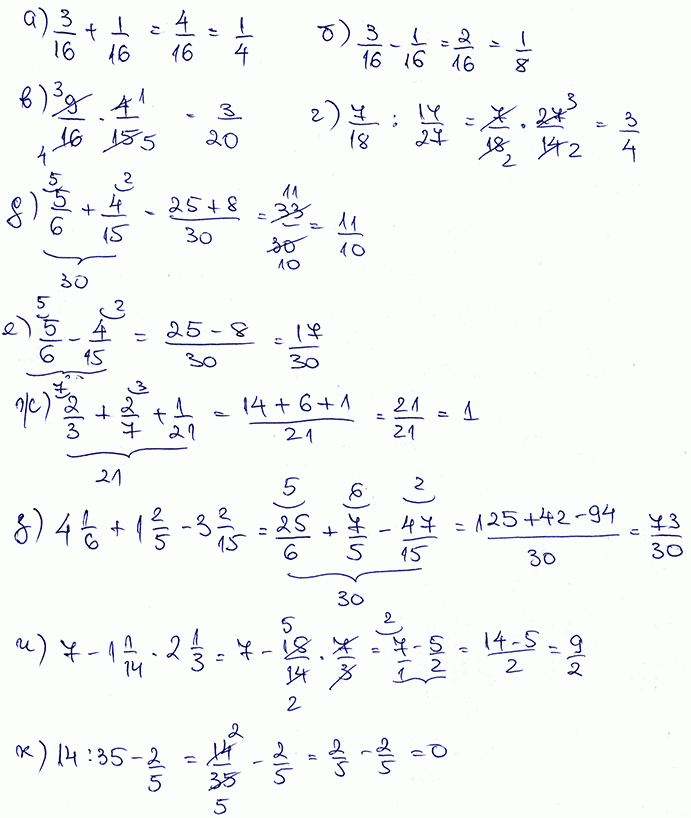 а) 3/16 + 1/16 = 4/16 = 1/4
б) 3/16 - 1/16 = 2/16 = 1/8
в) 3 9/16 4 · 4 1/15 5 = 3/20
г) 7/18 : 14/27 = 7/18 2 · 27 3/14 2 = 3/4
д) 5 5/6 + 2 4/15 = 25+8/30 = 11 33/30 10 = 11/10
30
е) 5 5/6 - 2 4/15 = 25-8/30 = 17/30
ж) 7 2/3 + 3 2/7 + 1/21 = 14+6+1/21 = 21/21 = 1
21
з) 4 1/6 + 1 2/5 - 3 2/15 = 5 25/6 + 6 7/5 - 2 47/15 = 125+42-94/30 = 73/30
30
и) 7 - 1 1/14 · 2 1/3 = 7 - 5 18/14 2 · 7/3 = 2 7/1 - 5/2 = 14-5/2 = 9/2
к) 14 : 35 - 2/5 = 14 2/35 5 - 2/5 = 2/5 - 2/5 = 0